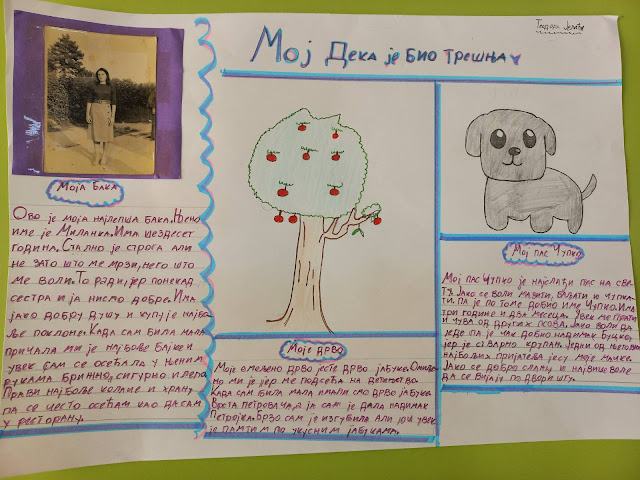 Мој Дека је био трешња
Моја бака
Ово је моја најлепша бака. Њено
име је Миланка. Има шездесет
година. Стално је строга али
не зато што ме мрзи, него што
ме воли. То ради, јер понекад
сестра и ја нисмо добре. Има
јако добру душу и купује најбо-
ље поклоне. Када сам била мала
причала ми је најбоље бајке и
увек сам се осећала у њеним
рукама брижно, сигурно и лепо.
Прави најбоље колаче и храну
па се често осећам као да сам
у ресторану.
Моје дрво
Моје омиљено дрво јесте дрво јабука. Омиље-
но ми је јер ме подсећа на детињство.
Када сам била мала имали смо дрво јабука.
Врста петровача, а ја сам је дала надимак
Петројка. Брзо сам је изгубила али још увек
је памтим по укусним јабукама.
Мој пас Чупко
Мој пас Чупко је најслађи пас на све-
ту. Јако се воли мазити, ваљати и чупка-
ти. Па је по томе добио име Чупко. Има
три године и два месеца. Увек ме прати
и чува од других паса. Јако воли да
једе па је чак добио надимак Буцко,
јер је стварно крупан. Један од његових
најбољих пријатеља јесу моје мачке.
Јако се добро слажу и највише воле
да се вијају по дворишту.